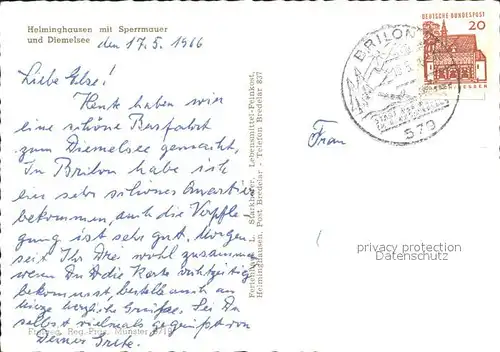 Helminghausen mit Sperrmauer
und Diemelsee
den 17.5.1966
Liebe Else!
Heute haben wir
eine schöne Busfahrt
zum Diemelsee gemacht.
In Brilon habe ich
ein sehr schönes Quartier
bekommen, auch die Verpfle-
gung ist sehr gut. Morgen
seit Ihr Drei wohl zusammen
wenn Du die Karte rechtzeitig
bekommst, bestelle auch an
herzliche Grüße. Sei Du
selbst vielmals gegrüßt von
Deiner Grete.
Reg.-Präs. Münster
Lebensmittel-Feinkost,
Helminghausen, Post Bredelar - Telefon Bredelar 837
Frau
BRILON
579
DEUTSCHE BUNDESPOST
20
privacy protection
Datenschutz